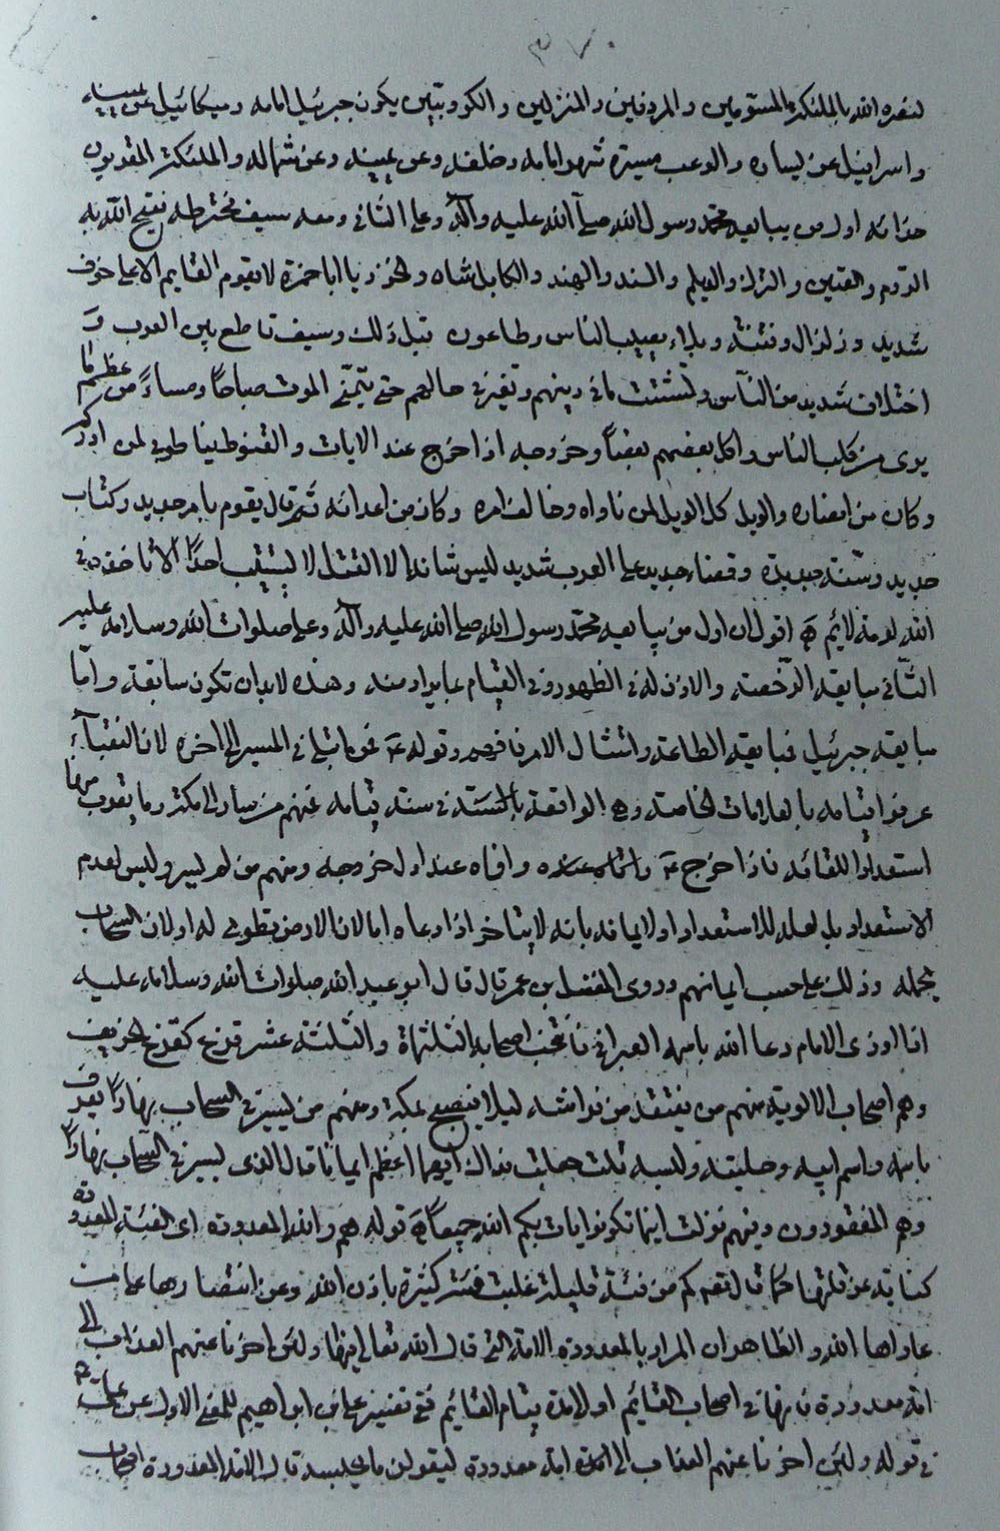 ٣٧٠
لنصره الله بالملئكة المسومين والمردفين والمنزلين والكروبيين يكون جبرئيل امامه وميكائيل عن يمينه
واسرافيل عن يساره والرعب مسيرة شهر امامه وخلفه وعن يمينه وعن شماله والملئكة المقربون
حذائه اول من يبايعه محمد رسول الله صلى الله عليه وآله وعلى الثانى ومعه سيف مخترطه يفتح الله به
الروم والصين والترك والديلم والسند والهند والكابل شاه والخزر يا ابا حمزة لا يقوم القايم الا على خوف
شديد وزلزال وفتنة وبلاء يصيب الناس وطاعون قبل ذلك وسيف قاطع بين العرب و
اختلاف شديد من الناس وتشتت فى دينهم وتغير فى حالهم حتى يتمنى الموت صباحاً ومساءً من عظم ما
يرى من كلب الناس واكل بعضهم بعضاً وخروجه اذا خرج عند الاياس والقنوط فيا طوبى لمن ادركه
وكان من انصاره والويل كل الويل لمن ناواه وخالف امره وكان من اعدائه ثم قال يقوم بامر جديد وكتاب
جديد وسنة جديدة وقضاء جديد على العرب شديد ليس شانه الا القتل لا يستتيب احداً لا تاخذه فى
الله لومة لائم اقول ان اول من يبايعه محمد رسول الله صلى الله عليه وآله وعلى صلوات الله وسلامه عليه
الثانى مبايعة الرخصة والاذن له فى الظهور وفى القيام بما يراد منه وهذه لا بد ان تكون سابقة واما
مبايعة جبرئيل فمبايعة الطاعة وامتثال الامر وقوله فى المسير الى اخره لان النقباء
عرفوا قيامه بالعلامات الخاصة وهى الواقعة فى سنة قيامه فمنهم من سار الى مكة وما يقرب منها
استعداداً للقائه فاذا خرج وافاه عند اول خروجه ومنهم من لم يسر وليس لعدم
الاستعداد بل لعله للاستعداد اولايمانه بانه لا يتاخر اذا دعاه اما لان الارض تطوى له او لان السحاب
يحمله وذلك على حسب ايمانهم وروى المفضل بن عمر قال قال ابو عبد الله صلوات الله وسلامه عليه
اذا اوذى الامام دعا الله باسمه العبرانى فانتخب اصحابه الثلثمائة والثلثة عشر قزع كقزع الخريف
وهم اصحاب الالوية منهم من يفتقد من فراشه ليلا فيصبح بمكة ومنهم من يسير فى السحاب نهاراً يعرف
باسمه واسم ابيه وحليته ونسبه قلت جعلت فداك ايهما اعظم ايماناً قال الذى يسير فى السحاب نهاراً
وهم المفقودون وفيهم نزلت اينما تكونوا يات بكم الله جميعاً قوله هم والله المعدودة اى الفئة المعدودة
كناية عن قلتها كما قال تعم كم من فئة قليلة غلبت فئة كثيرة باذن الله وعن انتصارها على من
عاداها الله والظاهر ان المراد بالمعدودة الامة التى قال الله تعالى فيها ولئن اخرنا عنهم العذاب الى
امة معدودة فانها فى اصحاب القائم او لامد قيام القائم ففى تفسير على بن ابراهيم للمعنى الاول عن على
فى قوله ولئن اخرنا عنهم العذاب الى امة معدودة ليقولن ما يحبسه قال الامة المعدودة اصحاب